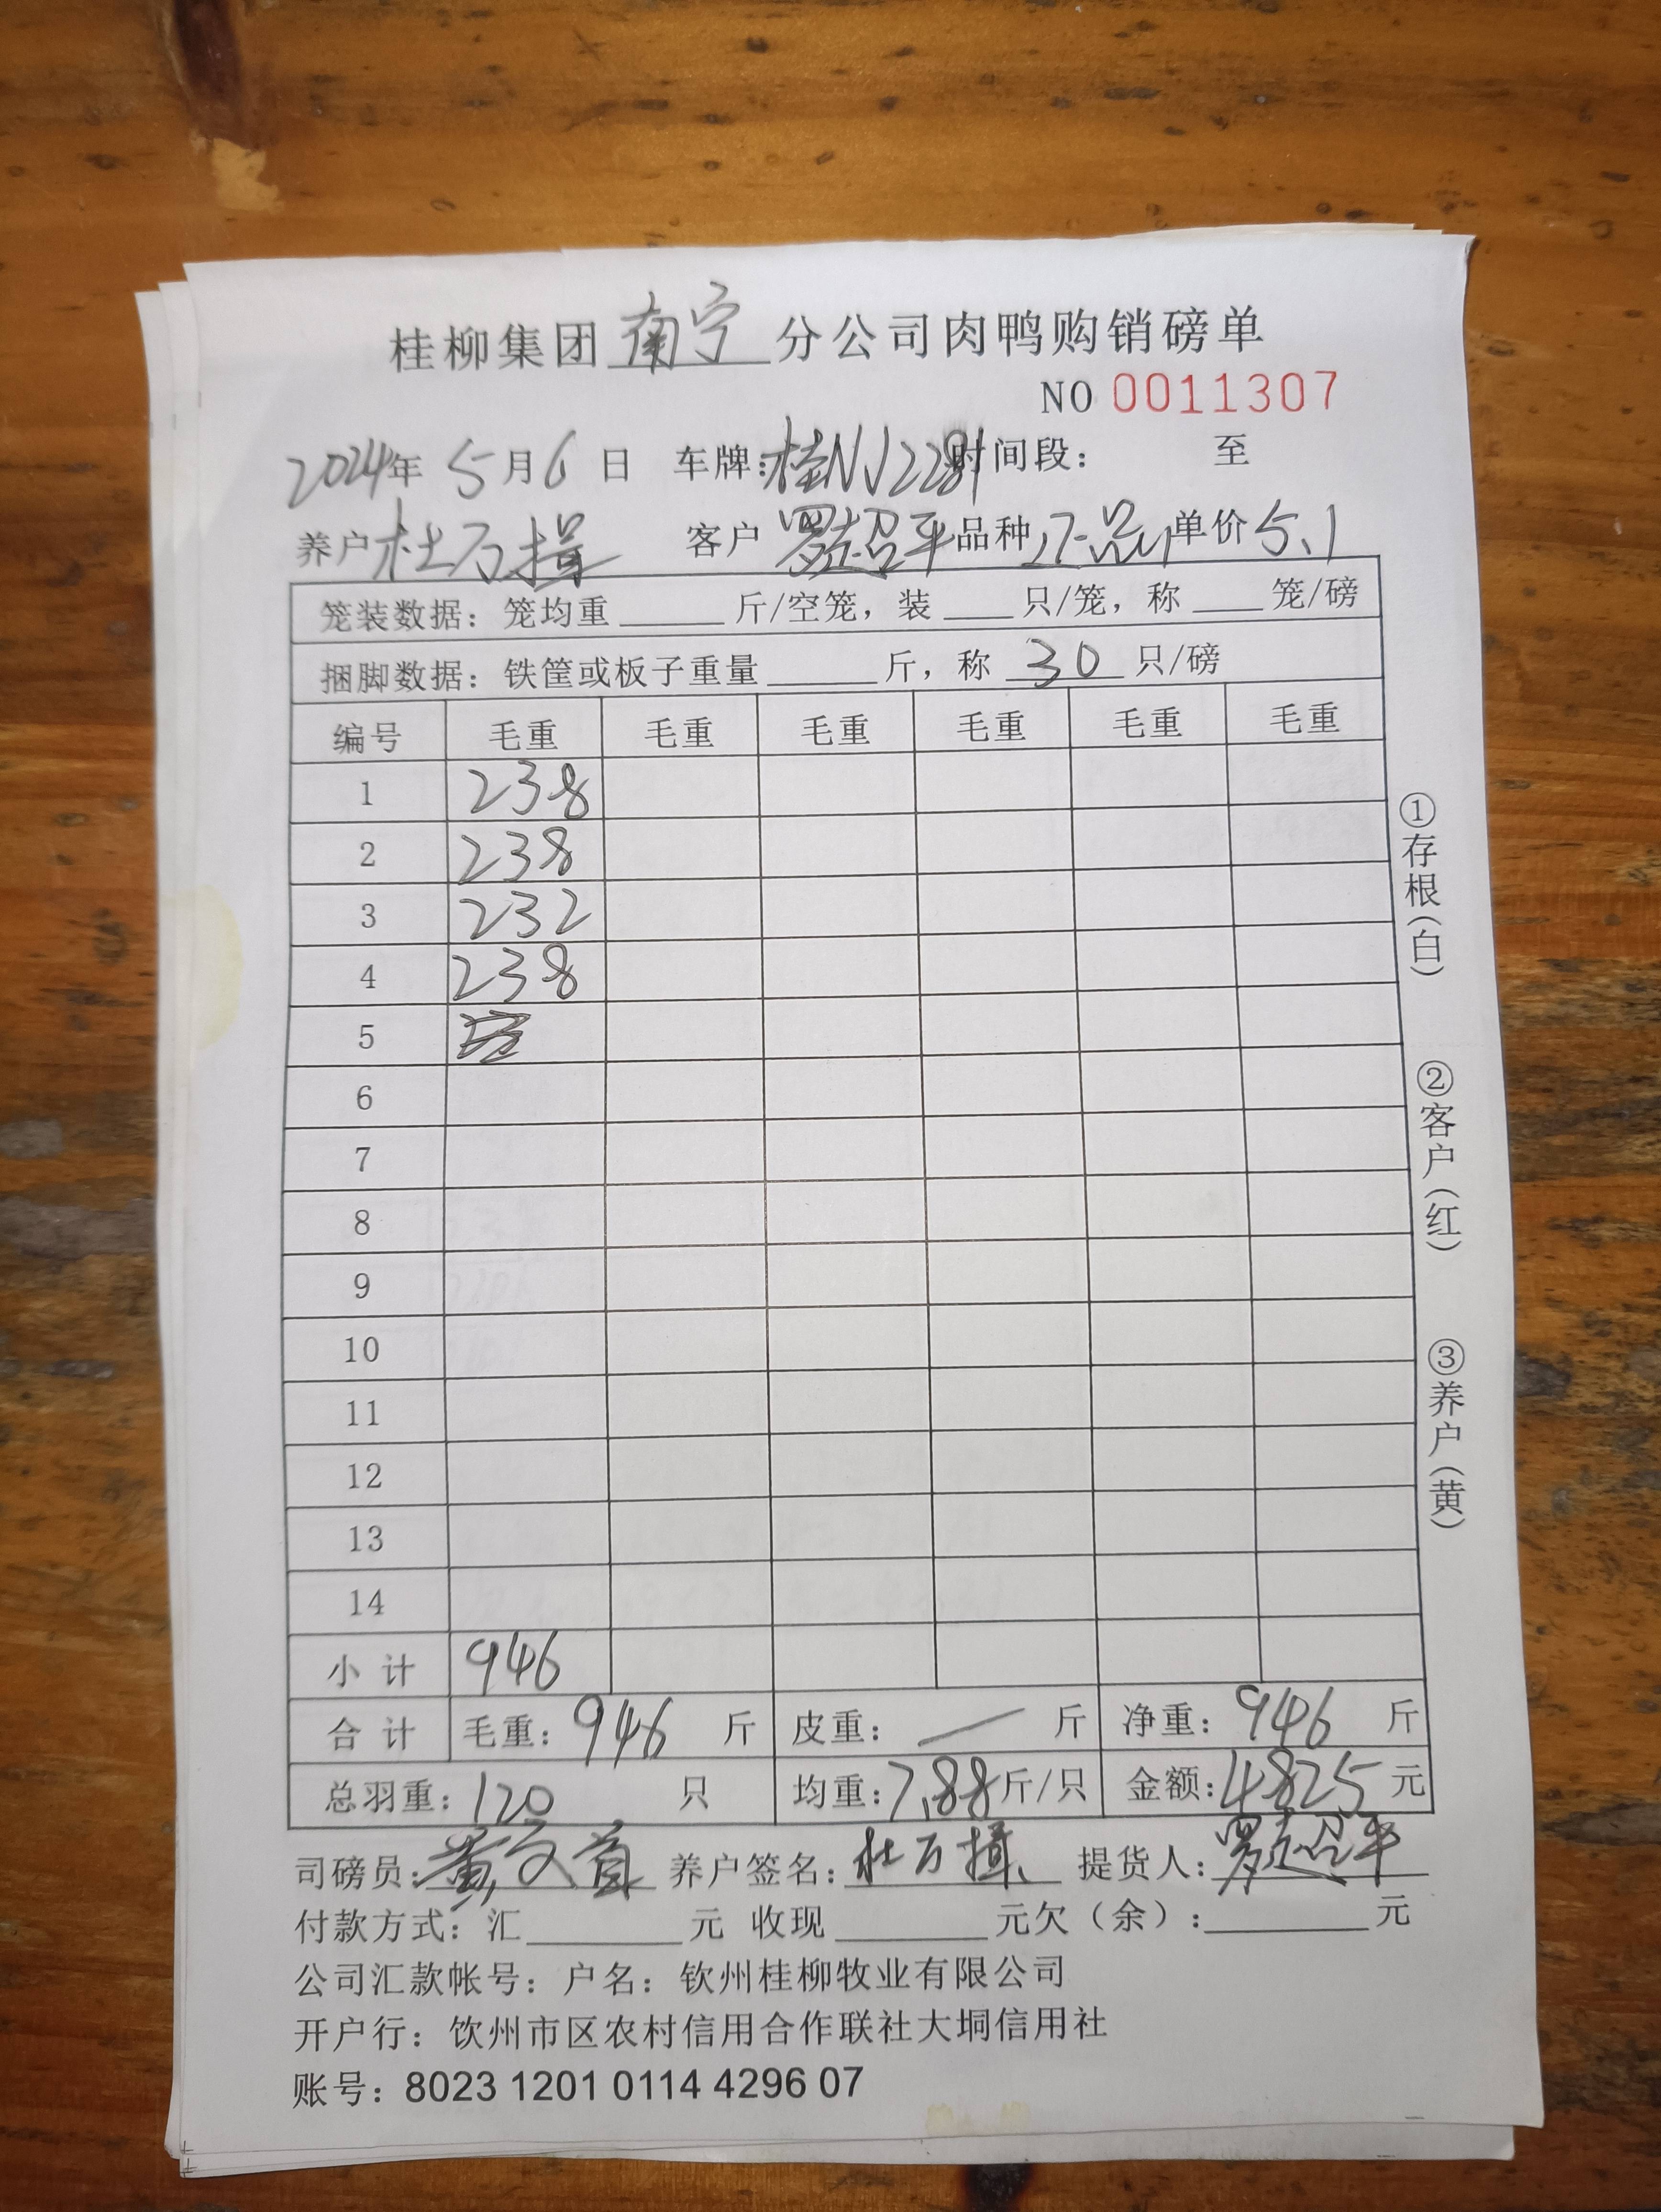 桂柳集团南宁分公司肉鸭购销磅单
NO 0011307
2024年 5月6日 车牌:桂NJ2281 时间段: 至
养户 杜万揖 客户 罗超平 品种 正品 单价 5.1
笼装数据: 笼均重 斤/空笼, 装 只/笼, 称 笼/磅
捆脚数据: 铁筐或板子重量 斤, 称 30 只/磅
编号 毛重 毛重 毛重 毛重 毛重 毛重
1 238
2 238
3 232
4 238
5
6
7
8
9
10
11
12
13
14
小计 946
合计 毛重: 946 斤 皮重: / 斤 净重: 946 斤
总羽重: 120 只 均重: 7.88 斤/只 金额: 4825 元
司磅员: 黄文 养户签名: 杜万揖 提货人: 罗超平
付款方式: 汇 元 收现 元欠(余): 元
公司汇款帐号: 户名: 钦州桂柳牧业有限公司
开户行: 钦州市区农村信用合作联社大垌信用社
账号: 8023 1201 0114 4296 07
①存根(白)
②客户(红)
③养户(黄)